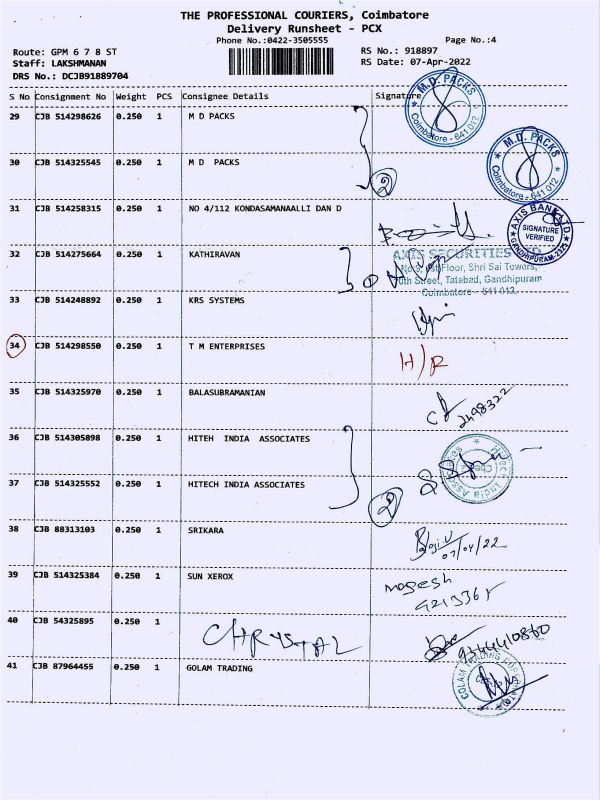 THE PROFESSIONAL COURIERS, Coimbatore
Delivery Runsheet - PCX
Phone No.:0422-3505555 Page No.:4
Route: GPM 6 7 8 ST RS No.: 918897
Staff: LAKSHMANAN RS Date: 07-Apr-2022
DRS No.: DCJB91889704
S No Consignment No Weight PCS Consignee Details Signature
29 CJB 514298626 0.250 1 M D PACKS
M.D. PACKS
Coimbatore - 641 012
30 CJB 514325545 0.250 1 M D PACKS
2
M.D. PACKS
Coimbatore - 641 012
31 CJB 514258315 0.250 1 NO 4/112 KONDASAMANAALLI DAN D
AXIS BANK LTD
SIGNATURE
VERIFIED
GANDHIPURAM-2375
32 CJB 514275664 0.250 1 KATHIRAVAN
AXIS SECURITIES LTD
No 9, 1st Floor, Shri Sai Towers,
Street, Tatabad, Gandhipuram
Coimbatore - 641 012
33 CJB 514248892 0.250 1 KRS SYSTEMS
34 CJB 514298550 0.250 1 T M ENTERPRISES
H/R
35 CJB 514325970 0.250 1 BALASUBRAMANIAN
2498322
36 CJB 514305898 0.250 1 HITEH INDIA ASSOCIATES
Hitech India Associates
37 CJB 514325552 0.250 1 HITECH INDIA ASSOCIATES
2
38 CJB 88313103 0.250 1 SRIKARA
Baji.V
07/04/22
39 CJB 514325384 0.250 1 SUN XEROX
mogesh
40 CJB 54325895 0.250 1 CHRYSTAL
9344410860
41 CJB 87964455 0.250 1 GOLAM TRADING
GOLAM TRADING